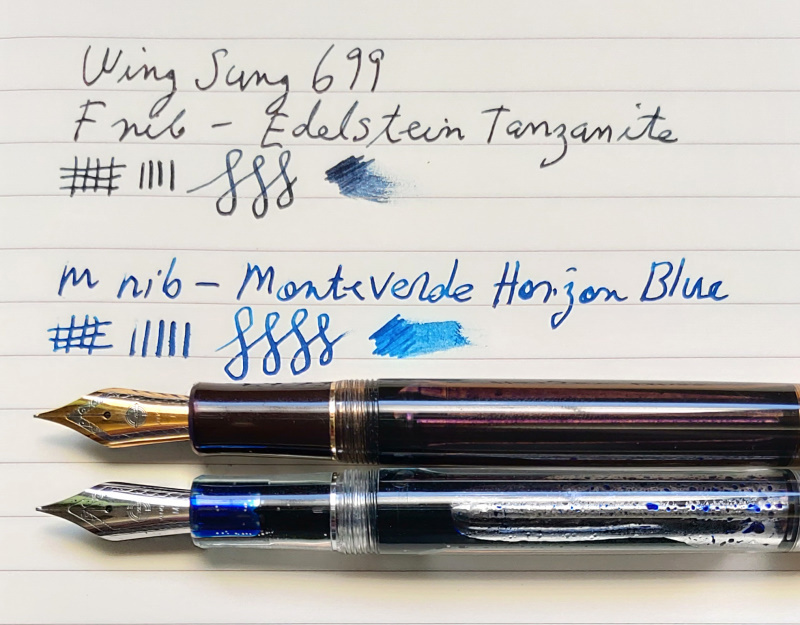 Wing Sung 699
F nib - Edelstein Tanzanite
M nib - Monteverde Horizon Blue